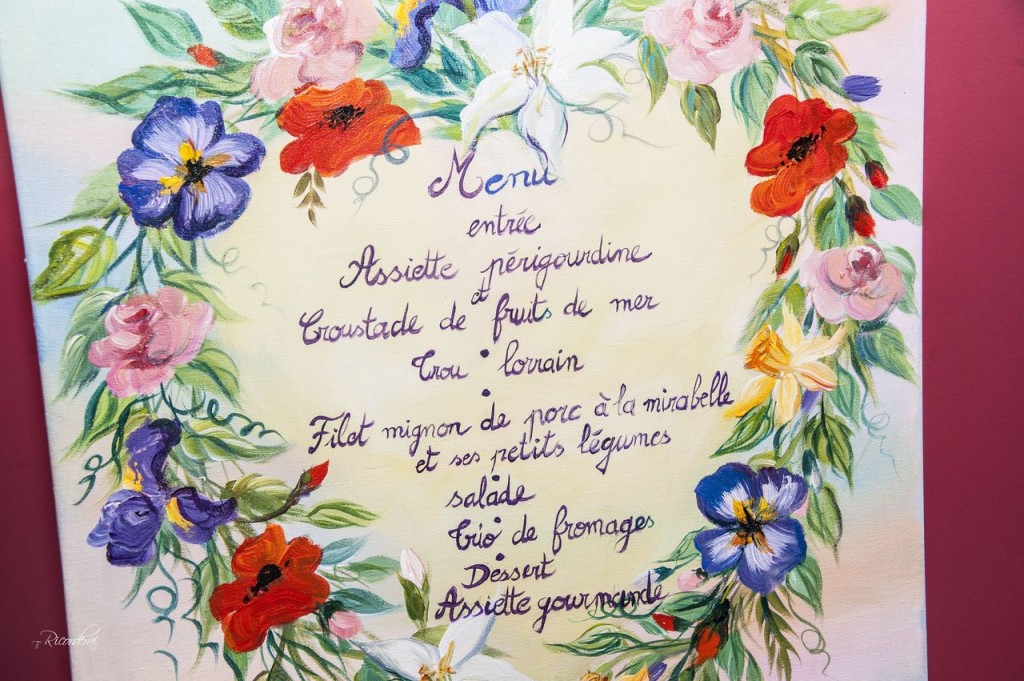 Menu
entrée
Assiette périgourdine
et
Croustade de fruits de mer
Trou lorrain
Filet mignon de porc à la mirabelle
et ses petits légumes
salade
Trio de fromages
Dessert
Assiette gourmande
Ricordorai